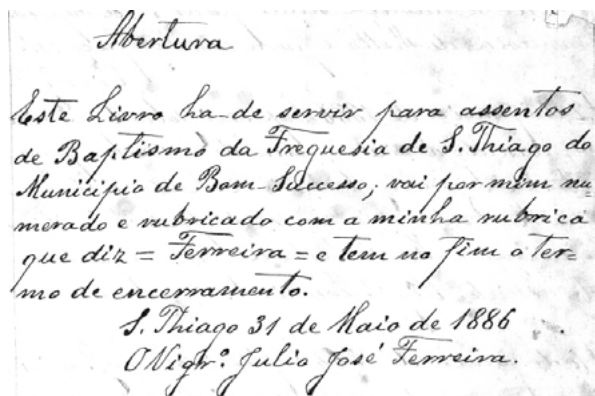 Abertura
Este Livro ha-de servir para assentos
de Baptismo da Freguesia de S. Thiago do
Municipio de Bom-Successo; vai por mim nu=
merado e rubricado com a minha rubrica
que diz = Ferreira = e tem no fim o ter=
mo de encerramento.
S. Thiago 31 de Maio de 1886
O Vigr.º Julio José Ferreira.